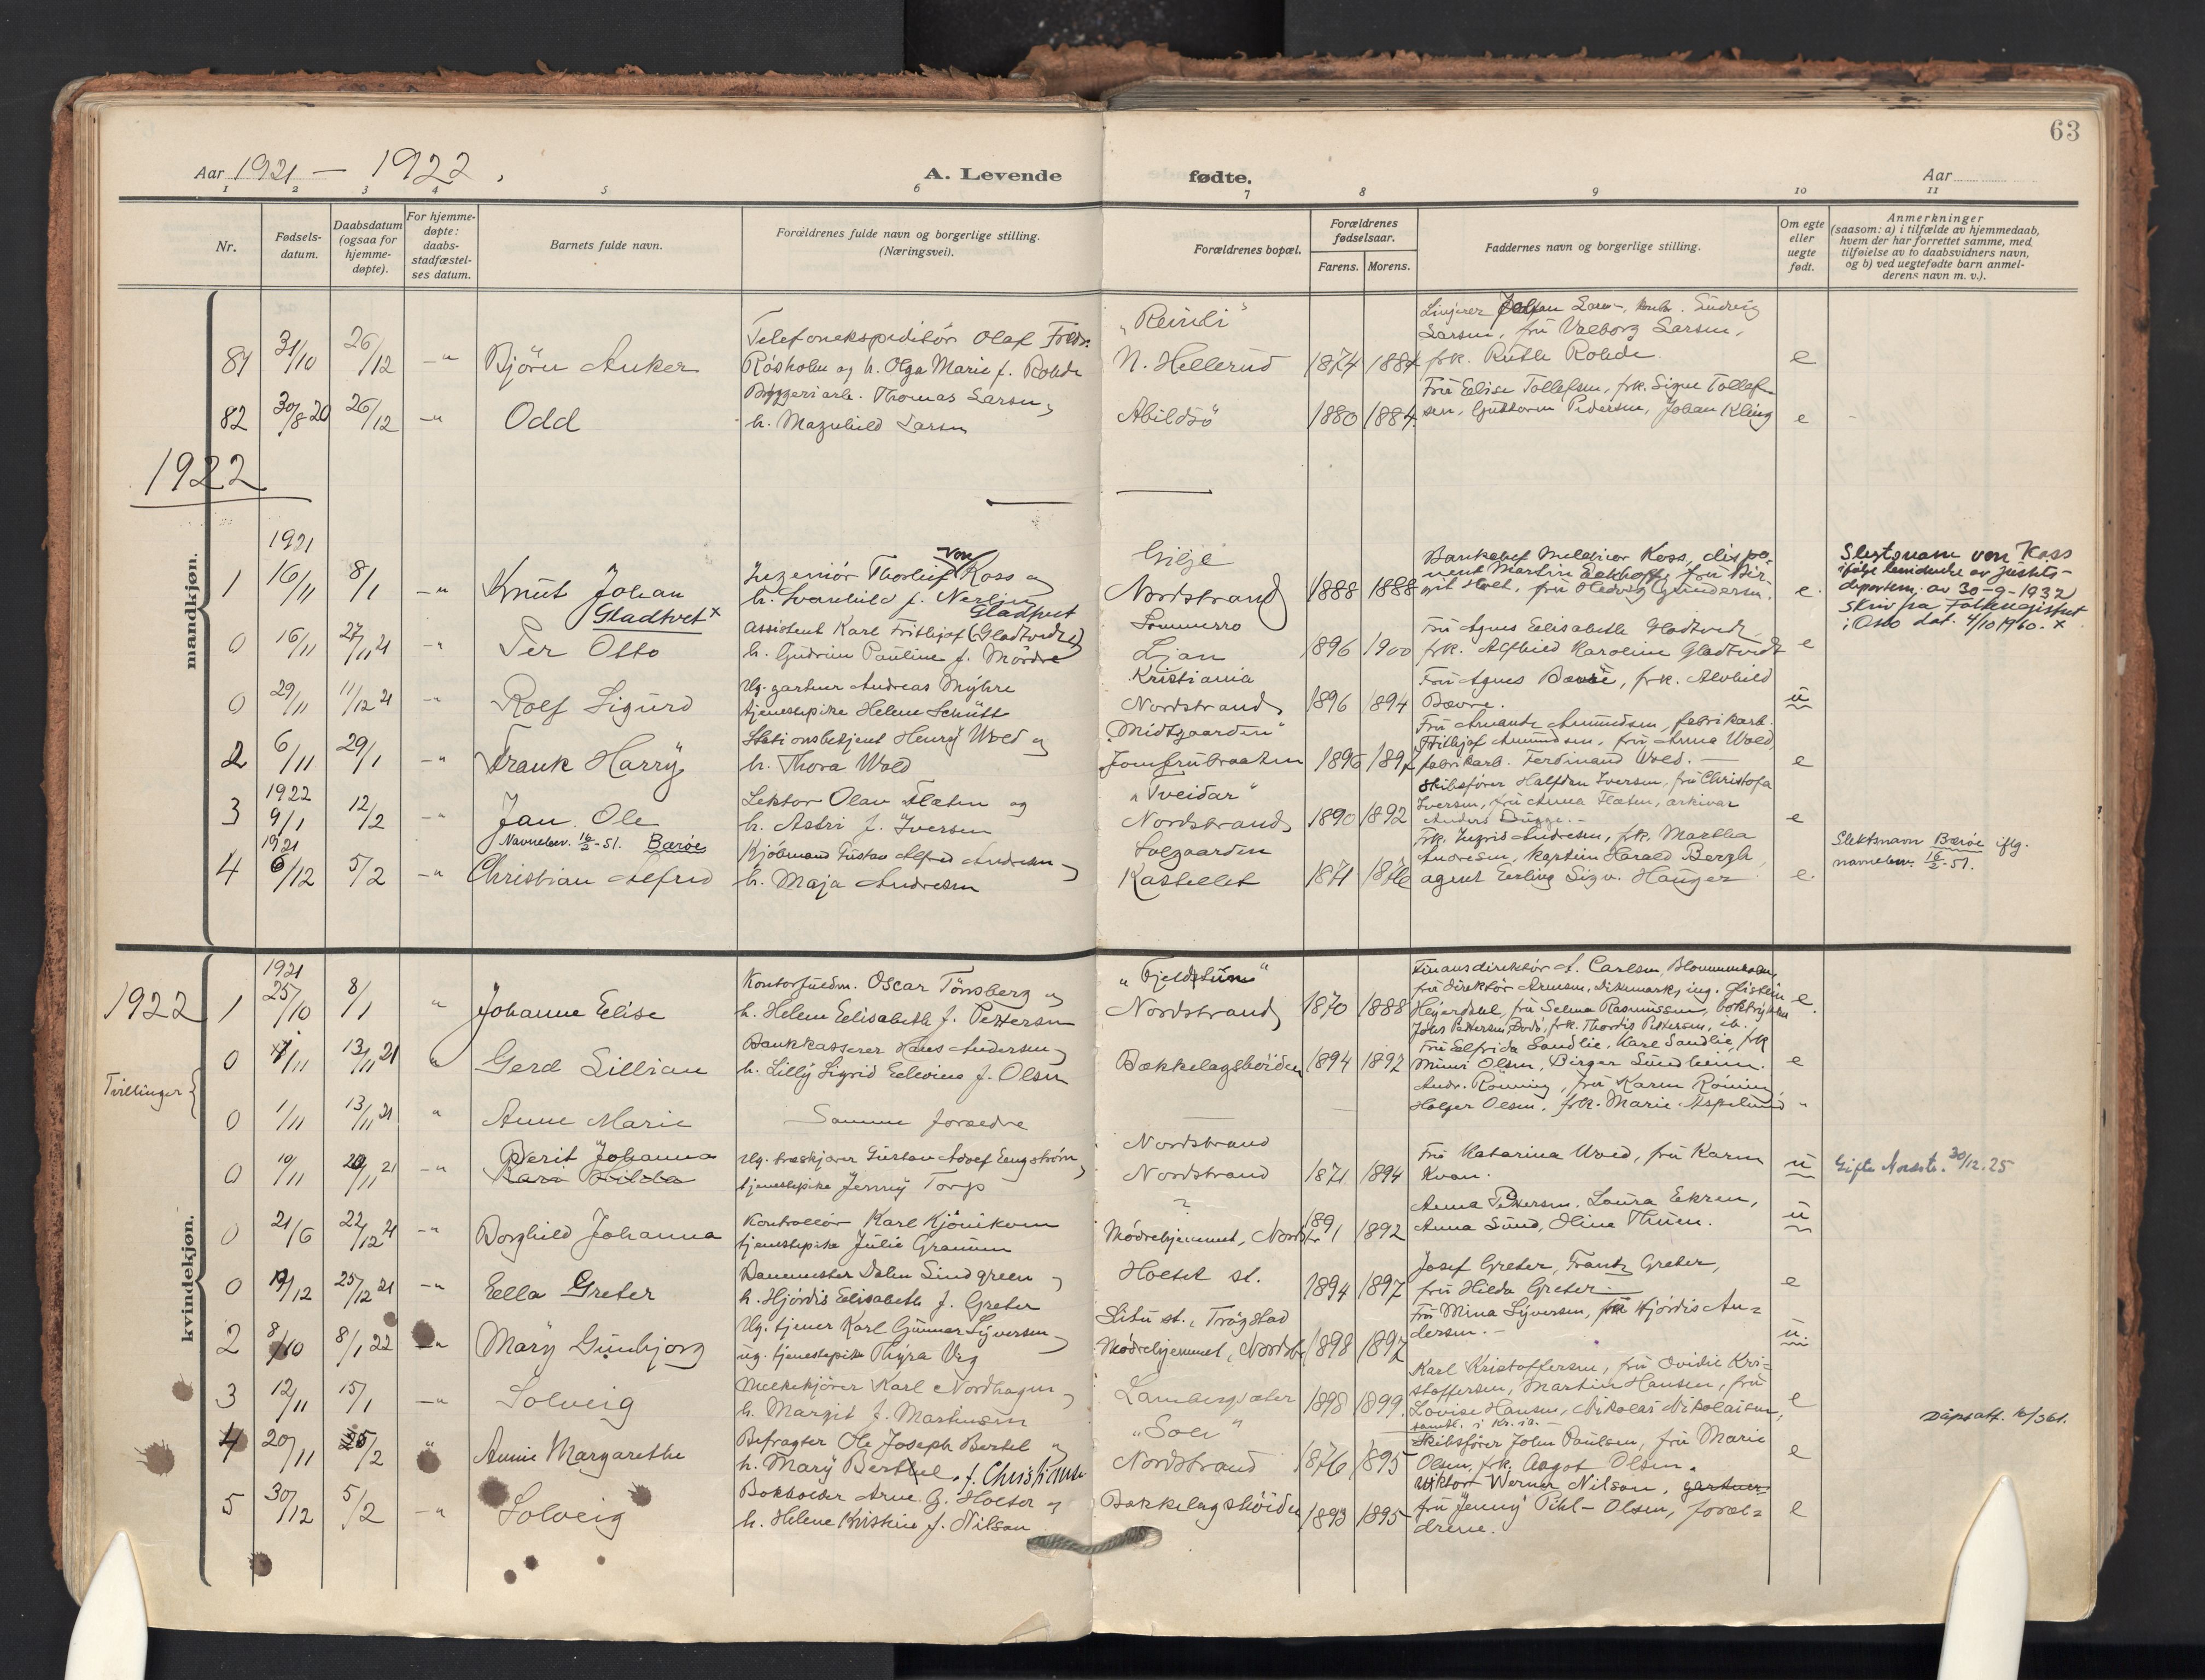 63
Aar 1921 — 1922.
A. Levende
fødte.
Aar
1 2 3 4 5 6 7 8 9 10 11
Nr.
Fødsels-
datum.
Daabsdatum
(ogsaa for
hjemme-
døpte).
For hjemme-
døpte:
daabs-
stadfæstel-
ses datum.
Barnets fulde navn.
Forældrenes fulde navn og borgerlige stilling.
(Næringsvei).
Forældrenes bopæl.
Forældrenes
fødselsaar.
Farens. Morens.
Faddernes navn og borgerlige stilling.
Om egte
eller
uegte
født.
Anmerkninger
(saasom: a) i tilfælde av hjemmedaab,
hvem der har forrettet samme, med
tilføielse av to daabsvidners navn,
og b) ved uegtefødte barn anmel-
derens navn m. v.).
mandkjøn.
81 31/10 26/12 —„ Björn Anker
Telefonekspeditör Olaf
Rösholm og h. Olga Marie f. Rohde
N. Hellerud 1874 1884
Larsen, fru Valborg Larsen,
frk. Ruth Rohde. e
82 30/8 20 26/12 —„ Odd
Bryggeriarb. Thomas Larsen,
h. Magnhild Larsen
Abildsö 1880 1884
Fru Elise Tollefsen, frk. Signe Tollef-
sen, Guttorm Pedersen, Johan Kling e
1922
1921
1 16/11 8/1 —„ Knut Johan
Ingeniör Thorleif von Koss og
h. Svanhild f. Nerlien
Gilje
Nordstrand 1888 1888
Bankchef Melchior Koss, dispo-
nent Martin Eckhoff, fru Bir-
git Holt, fru Hedvig Gundersen. e
Slegtsnavn von Koss
ifølge kundmelse av justits-
departem. av 30-9-1932
Skriv fra Folkeregistret
i Oslo dat. 4/10 1960. x
Gladtvet x
0 16/11 27/11 21 —„ Per Otto
Gladtvet
Assistent Karl Frithjof (Gladtvedt)
h. Gudrun Pauline f. Mördre
Sommerro
Ljan 1896 1900
Fru Agnes Elisabeth Gladtvedt,
frk. Alfhild Karoline Gladtvedt e
0 29/11 11/12 21 —„ Rolf Sigurd
Ug. gartner Andreas Myhre
tjenestepike Helene Schütt
Kristiania
Nordstrand 1896 1894
Fru Agnes Bævre, frk. Alvhild
Bævre. u
2 6/11 29/1 —„ Frank Harry
Stationsbetjent Henry Wold og
h. Thora Wold
„Midtgaarden“
Jomfrubraaten 1896 1897
Fru Amanda Amundsen, fabrikarb.
Frithjof Amundsen, fru Anna Wold,
fabrikarb. Ferdinand Wold. — e
1922
3 9/1 12/2 —„ Jan Ole
Lektor Olav Flaten og
h. Astri f. Iversen
„Tveidar“
Nordstrand 1890 1892
Skibsförer Halfdan Iversen, fru Christofa
Iversen, fru Anna Flaten, arkivar
Anders Bugge. — e
1921
Navnebev. 16/2-51. Bærøe
4 6/12 5/2 —„ Christian Alfred
Kjöbmand Gustav Alfred Andresen
h. Maja Andresen
Solgaarden
Kastellet 1871 1876
Frk. Ingrid Andresen, frk. Martha
Andresen, kaptein Harald Bergh,
agent Erling Sigv. Hauger. e
Slektsnavn Bærøe iflg.
navnebev. 16/2-51.
kvindekjøn.
1922
1921
1 25/10 8/1 „ Johanne Elise
Kontorfuldm. Oscar Tönsberg og
h. Helene Elisabeth f. Pettersen
„Fjeldstuen“
Nordstrand 1870 1888
Finansdirektör A. Carlsen, Blommenholm,
fru direktör Arnesen, Dikemark, ing. Eistein
Heyerdahl, fru Selma Rasmussen, boktrykker
Johs Pettersen, Bodö, frk. Thordis Pettersen, ib. e
Tvillinger
0 1/11 13/11 21 „ Gerd Lillian
Bankkasserer Hans Andersen
h. Lilly Sigrid Edevine f. Olsen
Bækkelagshöiden 1894 1897
Fru Elfrida Sandlie, Karl Sandlie, frk
Mimi Olsen, Birger Sundheim. e
0 1/11 13/11 21 „ Anne Marie
Samme forældre — —
Andr. Rönning, fru Karen Rönning,
Holger Olsen, frk. Marie Aspelund „
0 10/11 20/11 21 —„ Berit Johanna
Kari Hilda
Ug. træskjærer Gustav Adolf Engström,
tjenestepike Jenny Torp
Nordstrand
Nordstrand 1871 1894
Fru Katarina Wold, fru Karen
Kvam. u
Gifte Nordstr. 30/12.25
0 21/6 22/12 21 —„ Borghild Johanna
Kontrollör Karl Kjönikvem
tjenestepike Julie Granum
?
Mödrehjemmet, Nordstr. 1891 1892
Anna Pettersen, Laura Ekren,
Anna Sund, Oline Thuen. u
0 19/12 25/12 21 —„ Ella Greter
Banemester Dalen Lindgreen,
h. Hjördis Elisabeth f. Greter
Holtet st. 1894 1897
Josef Greter, Frantz Greter,
fru Hilda Greter — e
2 8/10 8/1 22 —„ Mary Gunbjorg
Ug. tjener Karl Gunnar Syversen,
ug. tjenestepike Thyra Veg
Trögstad
Mödrehjemmet, Nordstr. 1898 1897
Fru Mina Syversen, frk Hjördis An-
dersen. — u.
3 12/11 15/1 —„ Solveig
Melkekjörer Karl Nordhagen,
h. Margit f. Martinsen
Lambergsæter 1898 1899
Karl Kristoffersen, fru Ovidie Kri-
stoffersen, Martin Hansen, fru
Lovise Hansen, Nikolai Nikolaisen,
samtl. i Kr.ia. — e
4 20/11 25/2 „ Annie Margarethe
Befragter Ole Joseph Bertel
h. Mary Bertel. f. Christiansen
„Soli“
Nordstrand 1876 1895
Skibsförer John Paulsen, fru Marie
Olsen, frk. Aagot Olsen. e
Dåpsatt. 10/3 61.
5 30/12 5/2 —„ Solveig
Bokholder Arne G. Holter og
h. Helene Kristine f. Nilson
Bækkelagshöiden 1893 1895
Viktor Werner Nilson, gartner
fru Jenny Pihl-Olsen, foræl-
drene. e